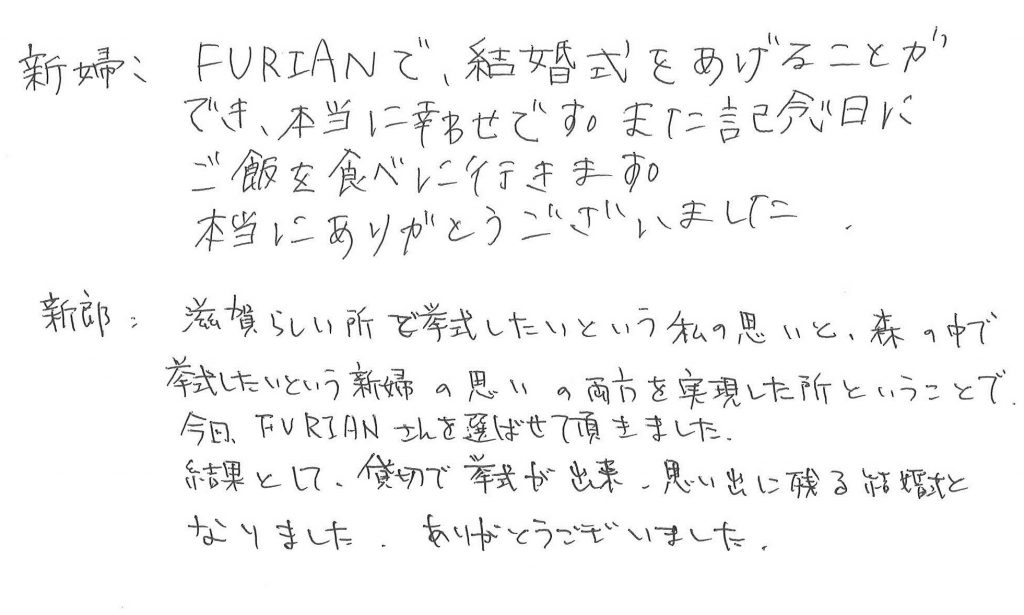 新婦: FURIANで、結婚式をあげることが
でき、本当に幸わせです。また記念日に
ご飯を食べに行きます。
本当にありがとうございました.
新郎: 滋賀らしい所で挙式したいという私の思いと、森の中で
挙式したいという新婦の思いの両方を実現した所ということで.
今回、FURIANさんを選ばせて頂きました.
結果として、貸切で挙式が出来、思い出に残る結婚式と
なりました. ありがとうございました.